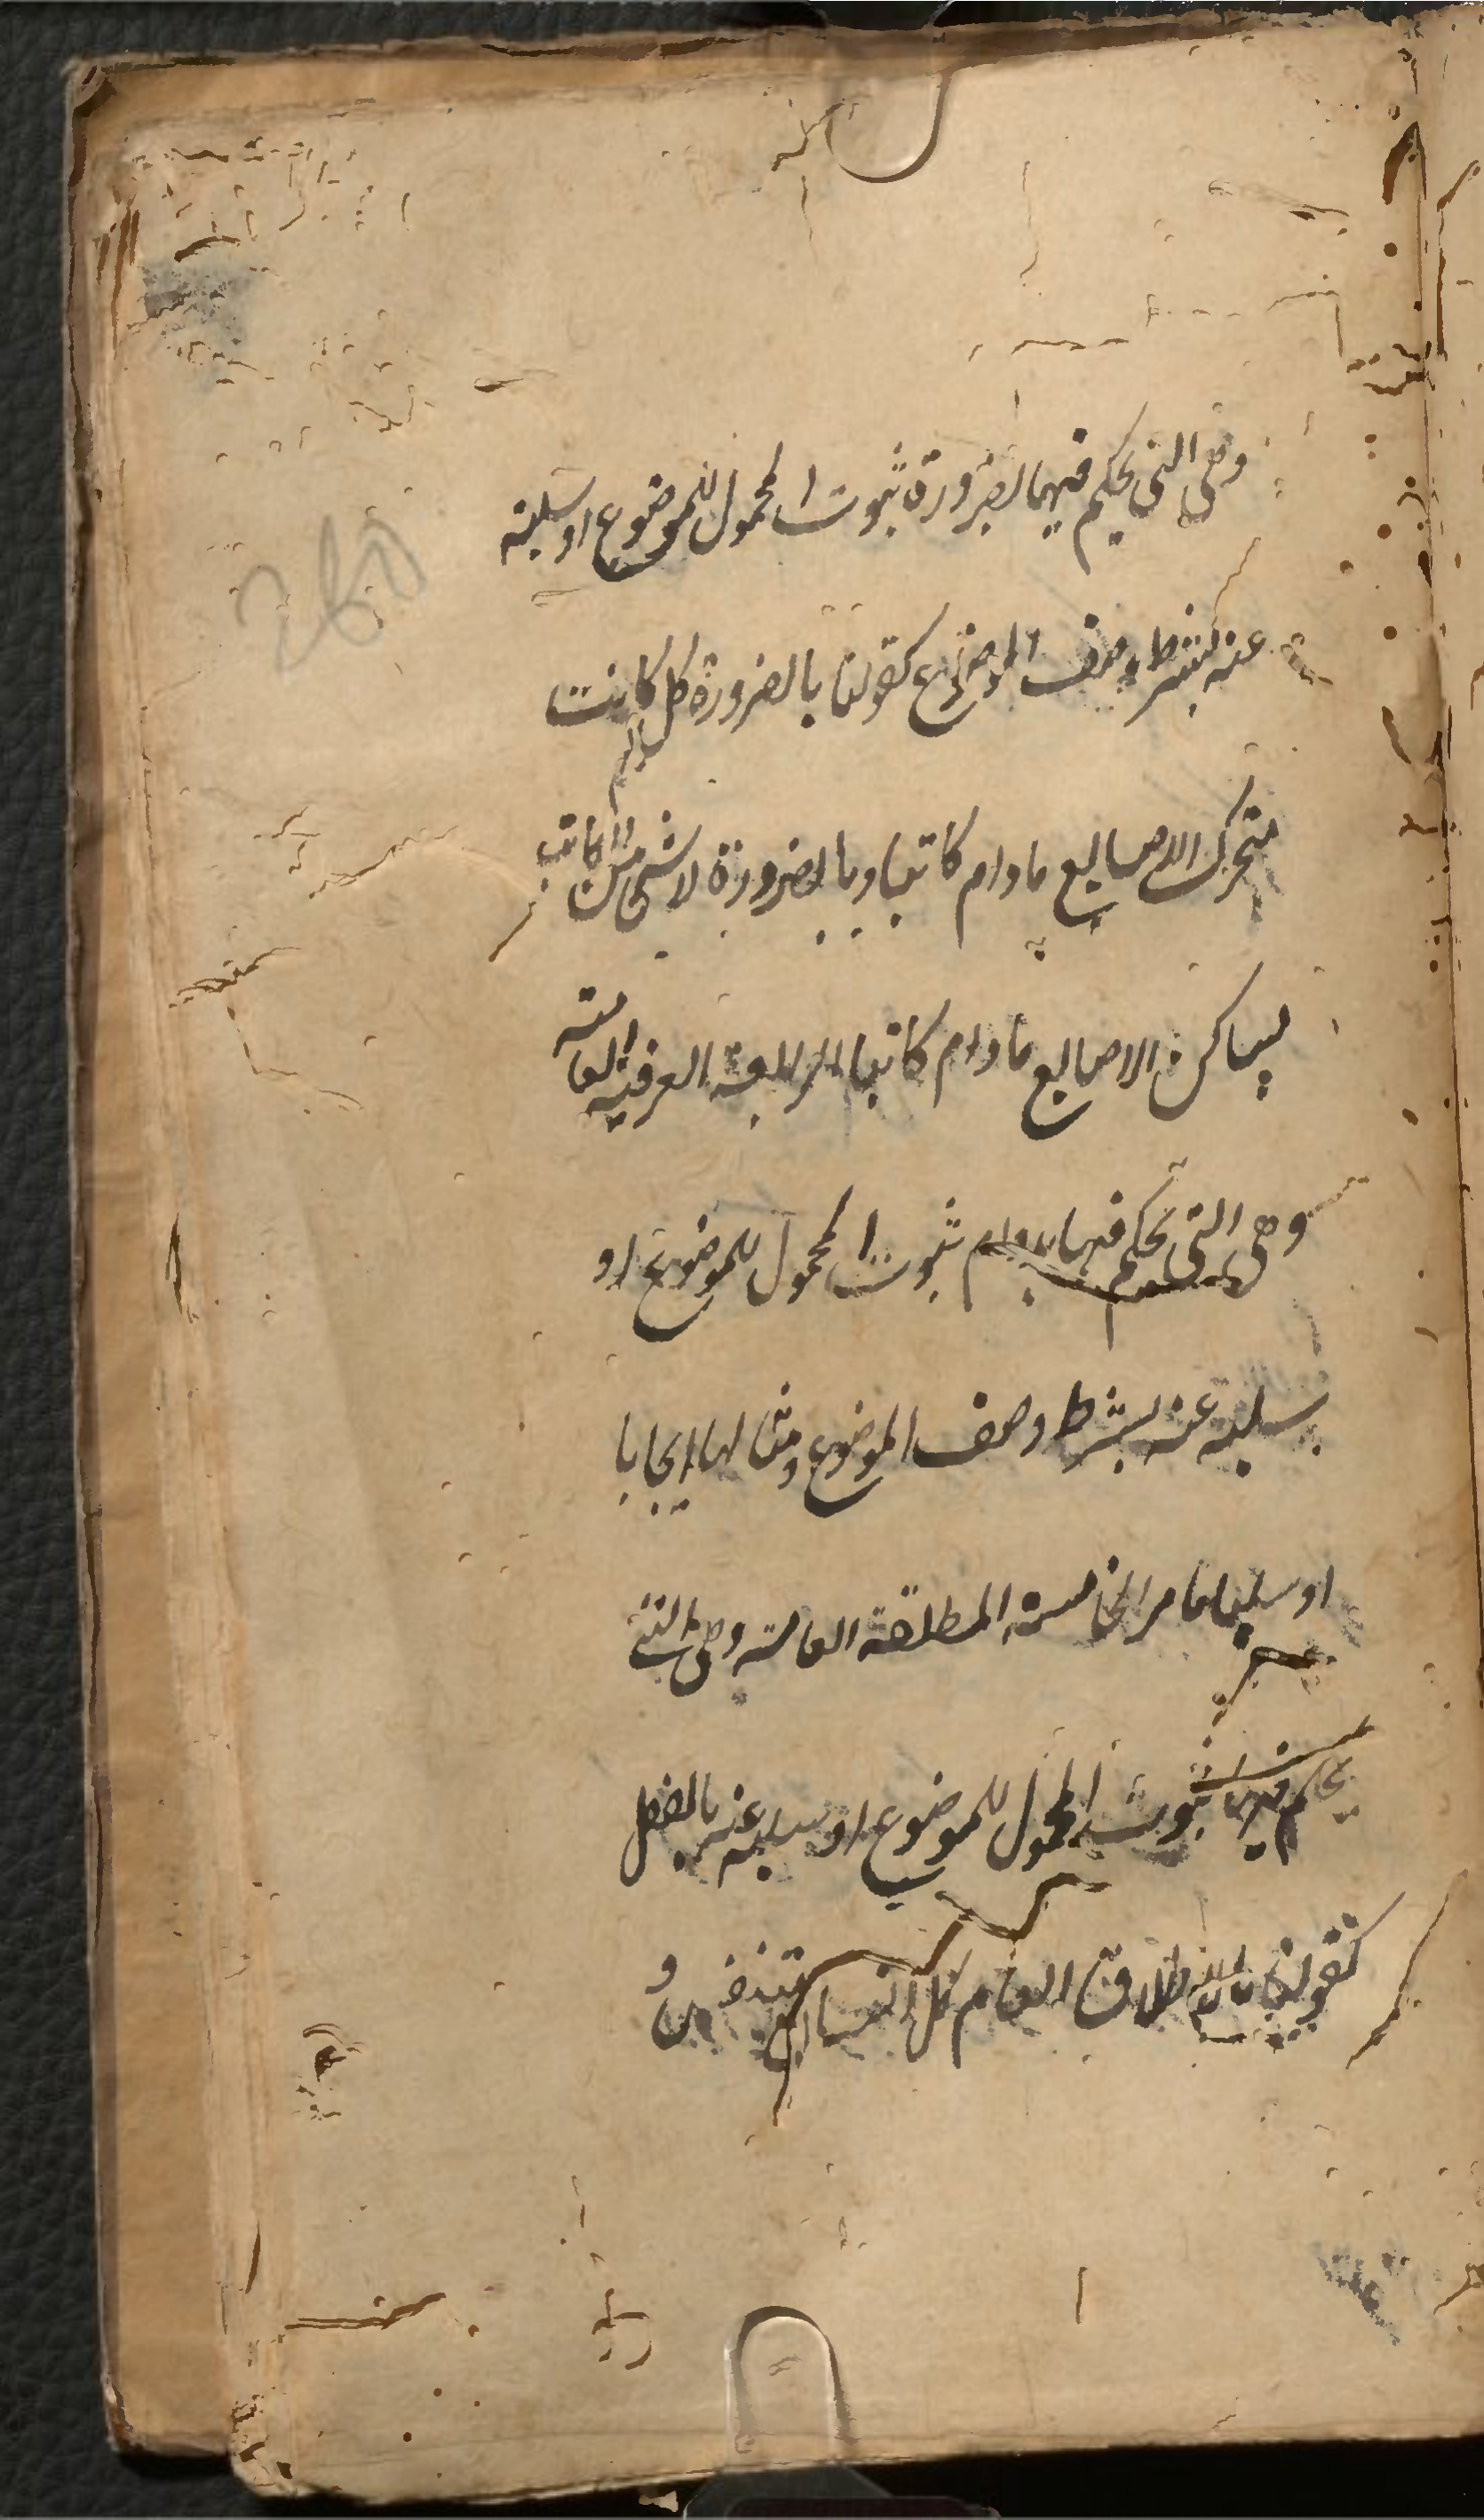 وهى التى يحكم فيها بضرورة ثبوت المحمول للموضوع او سلبه
عنه بشرط وصف الموضوع كقولنا بالضرورة كل كاتب
متحرك الاصابع ما دام كاتبا وبالضرورة لا شى من الكاتب
بساكن الاصابع ما دام كاتبا الرابعة العرفية العامة
وهى التى يحكم فيها بدوام ثبوت المحمول للموضوع او
سلبه عنه بشرط وصف الموضوع ومثالها ايجابا
او سلبا ما مر الخامسة المطلقة العامة وهى التى
يحكم فيها بثبوت المحمول للموضوع او سلبه عنه بالفعل
كقولنا بالاطلاق العام كل انسان متنفس و
260